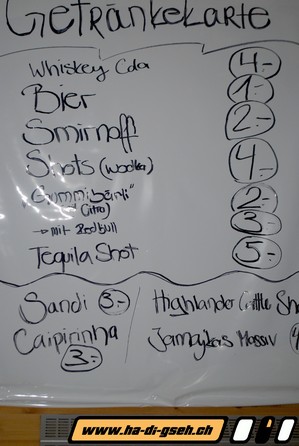 Getränkekarte
Whiskey Cola 4.-
Bier 1.-
Smirnoff 2.-
Shots (Wodka) 4.-
"Gummibärli" 2.-
Citro)
→ mit Redbull 3.-
Tequila Shot 5.-
Sandi 3.-
Highlander
Caipirinha 3.-
www.ha-di-gseh.ch